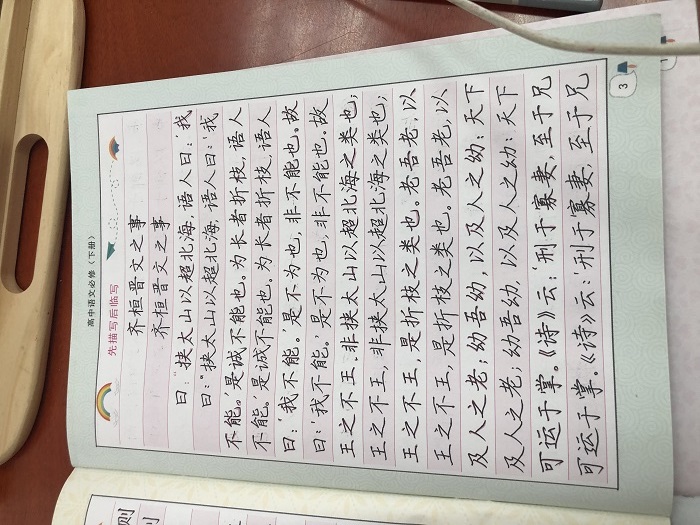 高中语文必修（下册）
先描写后临写
齐桓晋文之事
齐桓晋文之事
曰：“挟太山以超北海，语人曰：‘我
曰：“挟太山以超北海，语人曰：‘我
不能。’是诚不能也。为长者折枝，语人
不能。’是诚不能也。为长者折枝，语人
曰：‘我不能。’是不为也，非不能也。故
曰：‘我不能。’是不为也，非不能也。故
王之不王，非挟太山以超北海之类也；
王之不王，非挟太山以超北海之类也；
王之不王，是折枝之类也。老吾老，以
王之不王，是折枝之类也。老吾老，以
及人之老；幼吾幼，以及人之幼：天下
及人之老；幼吾幼，以及人之幼：天下
可运于掌。《诗》云：‘刑于寡妻，至于兄
可运于掌。《诗》云：‘刑于寡妻，至于兄
3
则